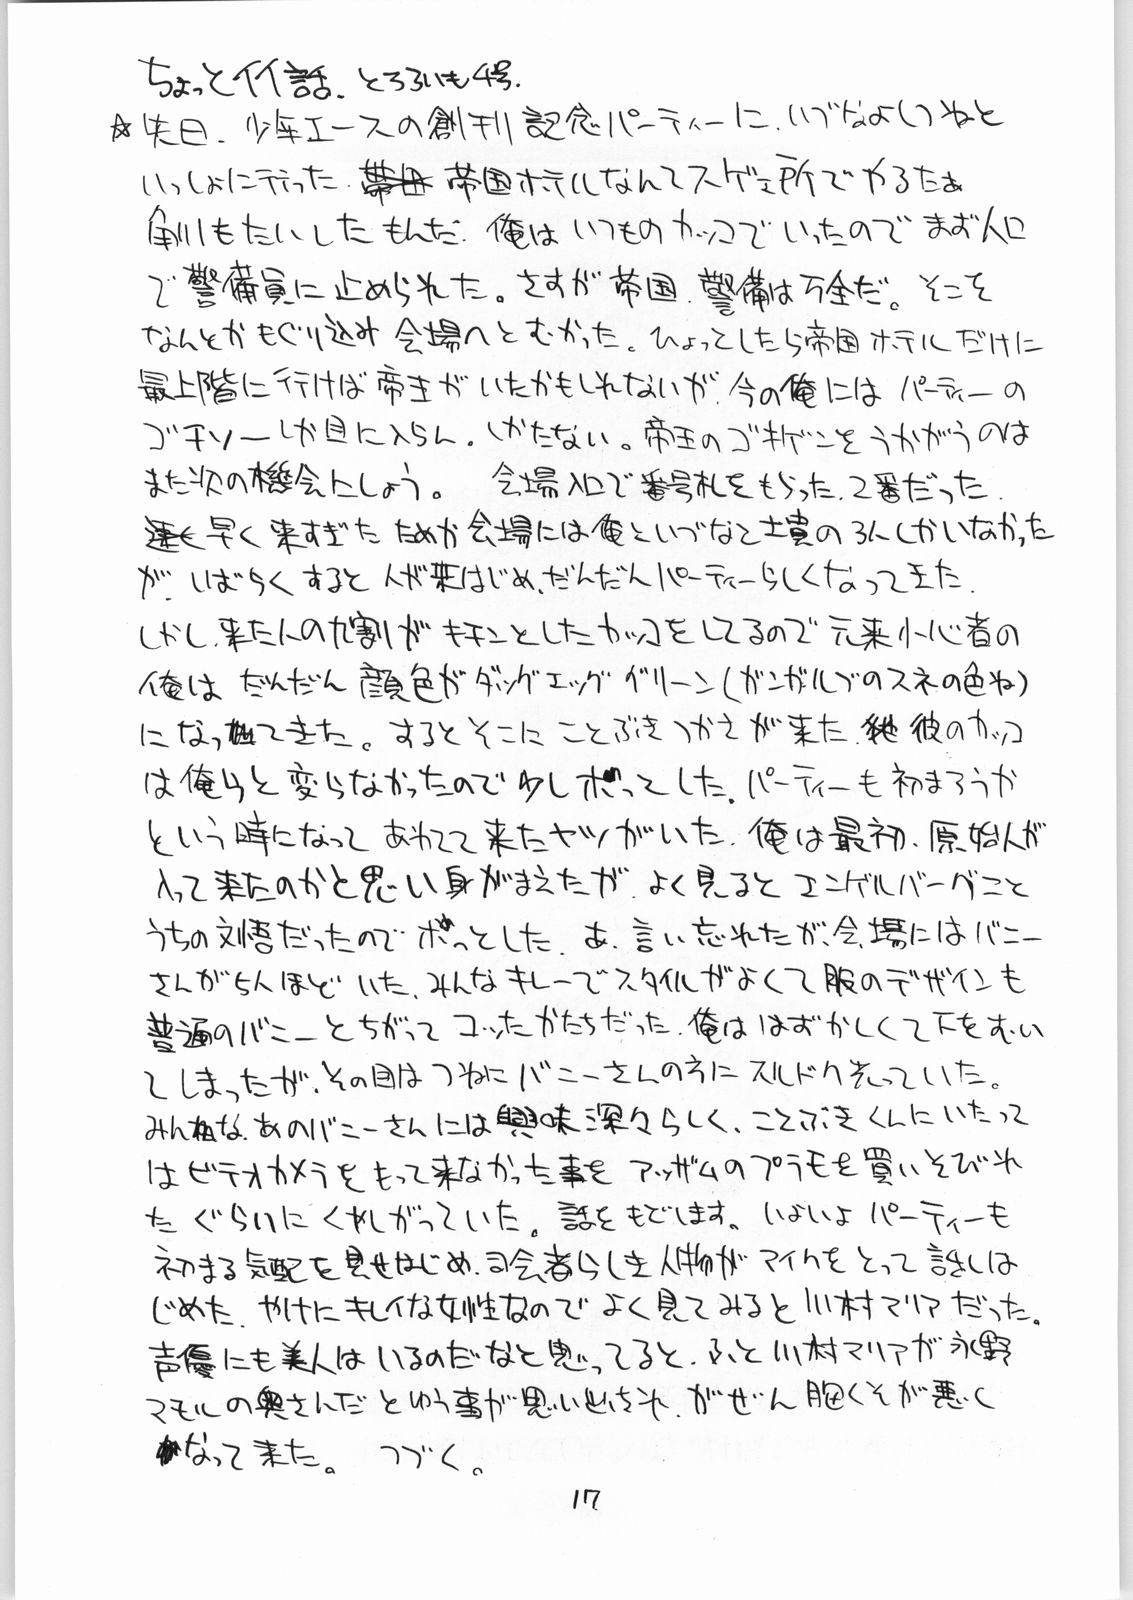 ちょっとイイ話、とろろいも4号.
☆先日、少年エースの創刊記念パーティーに、いづなよしつねと
いっしょに行った. 帝国ホテルなんてスゲェ所でやるたぁ
角川もたいしたもんだ. 俺はいつものカッコでいったのでまず入口
で警備員に止められた。さすが帝国、警備は万全だ。そこを
なんとかもぐり込み会場へとむかった。ひょっとしたら帝国ホテルだけに
最上階に行けば帝王がいたかもしれないが、今の俺にはパーティーの
ゴチソーしか目に入らん. しかたない。帝王のゴキゲンをうかがうのは
また次の機会にしょう。 会場入口で番号札をもらった、2番だった.
早く来すぎたためか会場には俺といづなと士貴の3人しかいなかった
が、しばらくすると人が来はじめ、だんだんパーティーらしくなってきた.
しかし、来た人の九割がキチンとしたカッコをしてるので元来小心者の
俺はだんだん顔色がダックエッググリーン(ガンガルブのスネの色ね)
になってきた。するとそこにことぶきつかさが来た. 彼のカッコ
は俺らと変らなかったので少しホッとした. パーティーも初まろうか
という時になってあわてて来たヤツがいた. 俺は最初、原始人が
入って来たのかと思い身がまえたが、よく見るとエンゲルバーグこと
うちの文悟だったのでホッとした. あ、言い忘れたが、会場にはバニー
さんが5人ほどいた、みんなキレーでスタイルがよくて服のデザインも
普通のバニーとちがってコッたかたちだった. 俺ははずかしくて下をむい
てしまったが、その目はつねにバニーさんの方にスルドク光っていた。
みんな、あのバニーさんには興味深々らしく、ことぶきくんにいたって
はビデオカメラをもって来なかった事をアッザムのプラモを買いそびれ
たぐらいにくやしがっていた。話をもどします。いよいよパーティーも
初まる気配を見せはじめ、司会者らしき人物がマイクをとって話しは
じめた. やけにキレイな女性なのでよく見てみると川村マリアだった。
声優にも美人はいるのだなと思ってると、ふと川村マリアが永野
マモルの奥さんだとゆう事が思い出され、がぜん胸くそが悪く
なって来た。 つづく。
17